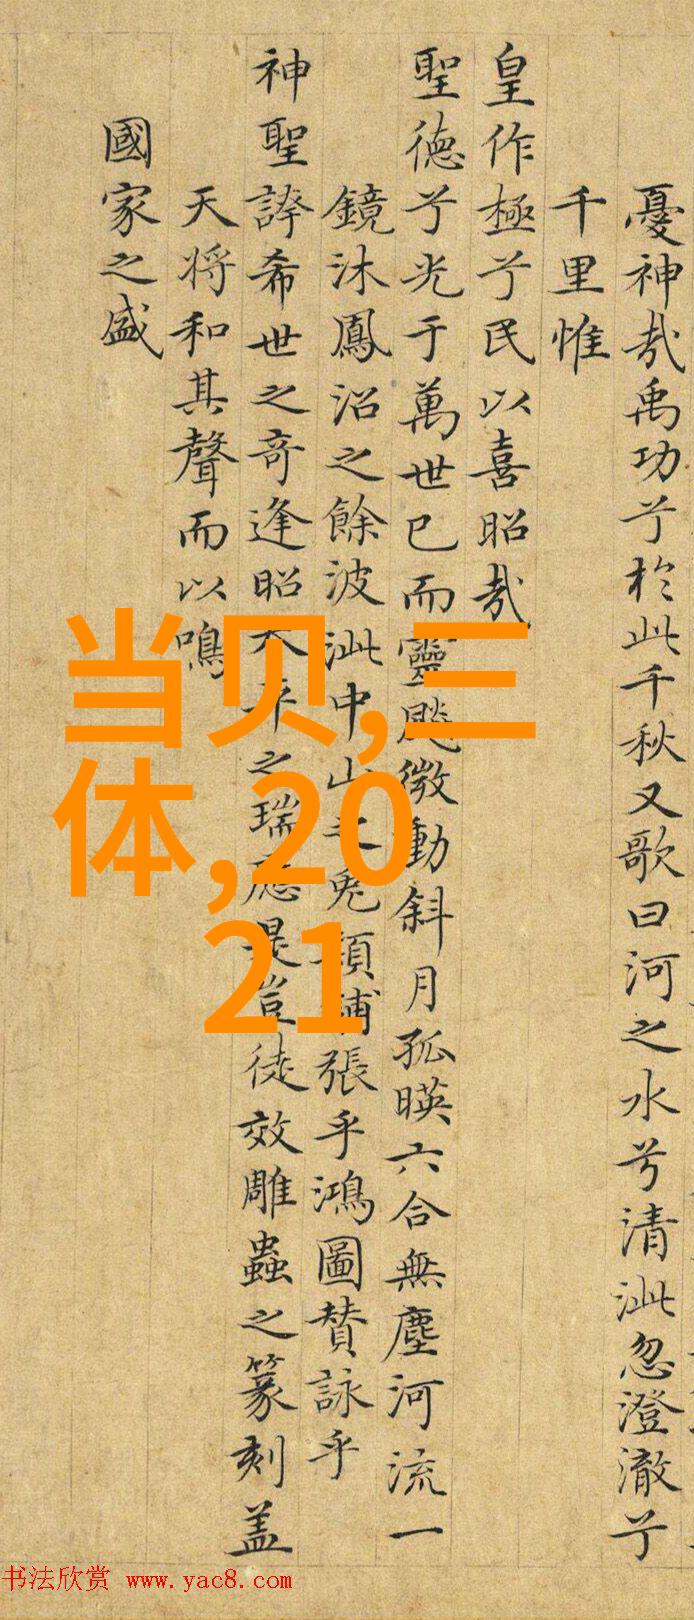 憂神哉禹功兮於此千秋又歌曰河之水兮清泚忽澄澈兮
千里惟
皇作極兮民以喜昭哉
聖德兮光于萬世已而靈飈微動斜月孤暎六合無塵河流一
鏡沐鳳沼之餘波泚中山之兔穎鋪張乎鴻圖賛詠乎
神聖誇希世之奇逢昭太平之瑞應是豈徒效雕蟲之篆刻盖
天将和其聲而以鳴
國家之盛
当贝,三
体,20
21
书法欣赏 www.yac8.com